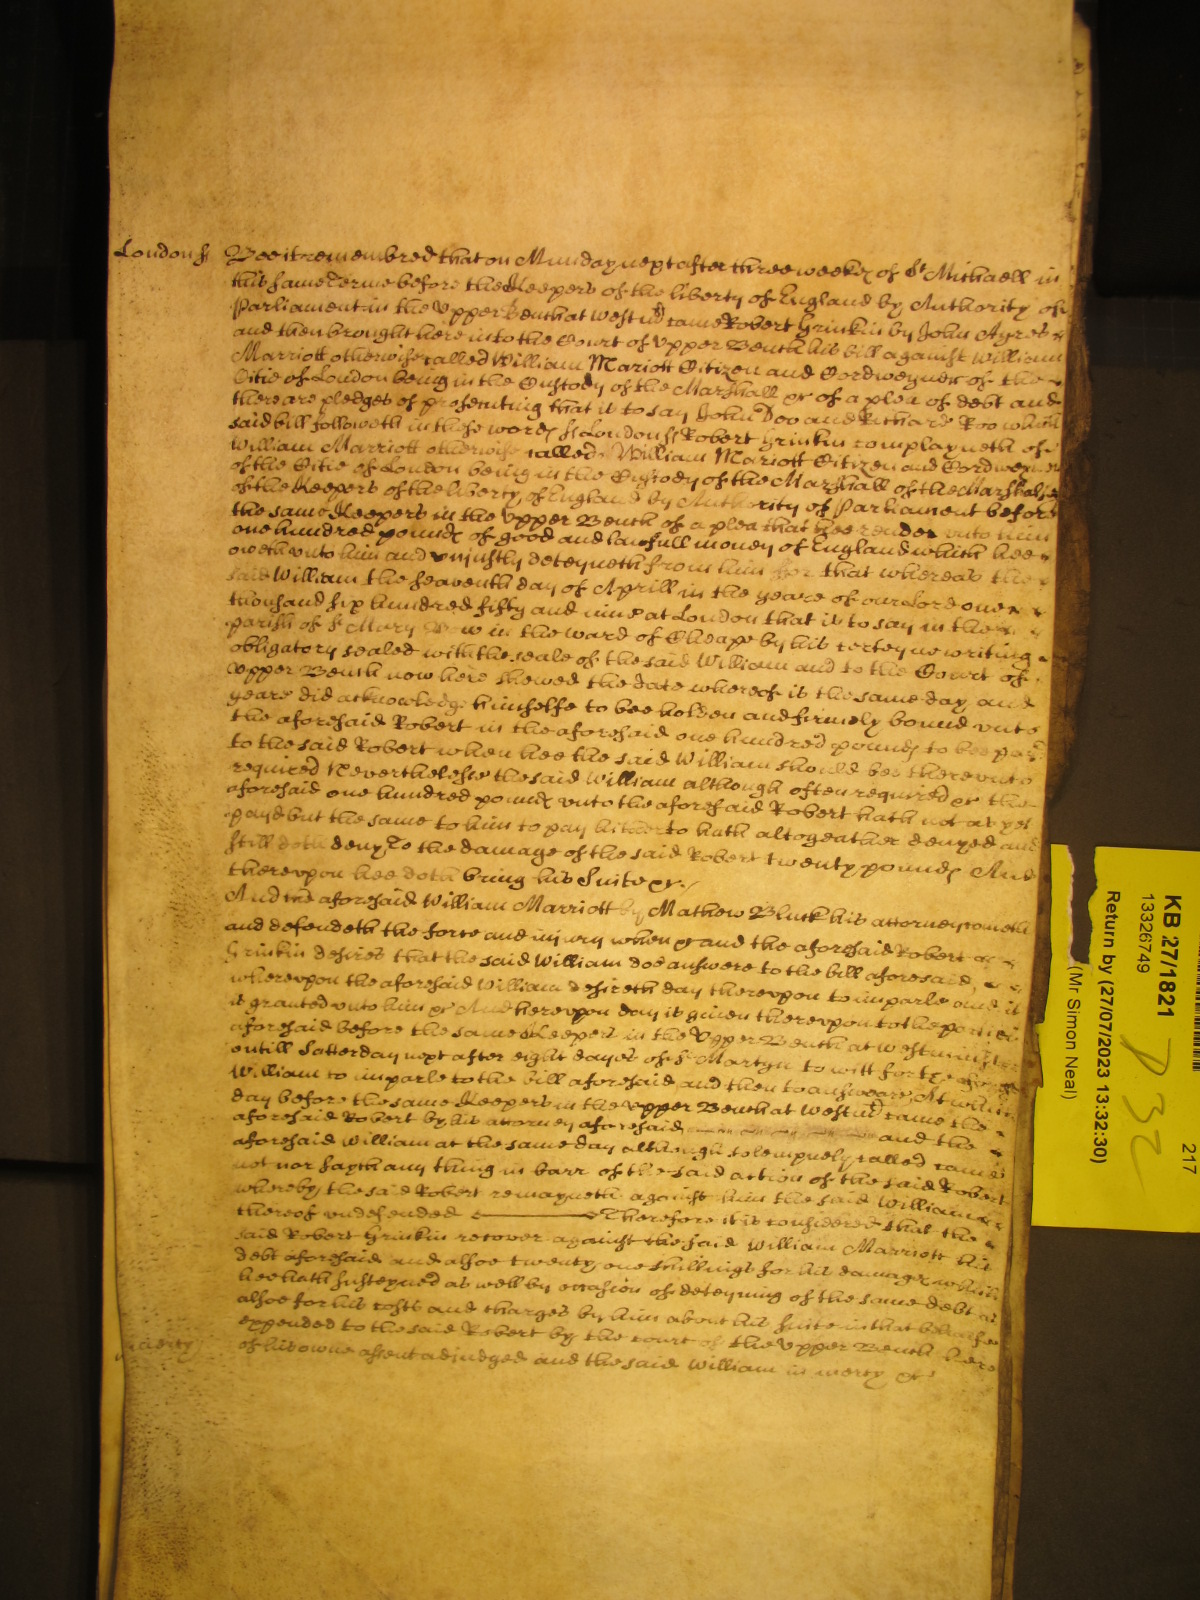 London ss Bee it remembred that on Munday next after three weekes of St Michaell in
this same Terme before the Keepers of the liberty of England by Authority of
Parliament in the Upper Bench at Westmr came Robert Grinkin by John Ayres
and then brought here into the Court of Upper Bench his bill against William
Marriott otherwise called William Mariott Citizen and Cordweyner of the
Citie of London being in the Custody of the Marshall &c of a plea of debt and
there are pledges of prosecuting that is to say John Doo and Richard Roo which
said bill followeth in these words ss London ss Robert Grinkin complayneth of
William Marriott otherwise called William Mariott Citizen and Cordweyner
of the Citie of London being in the Custody of the Marshall of the Marshalsea
of the Keepers of the liberty of England by Authority of Parliament before
the same Keepers in the Upper Bench of a plea that hee render unto him
one hundred pounds of good and lawfull money of England which hee
oweth unto him and unjustly deteyneth from him for that whereas the
said William the seaventh day of Aprill in the yeare of our Lord one
thousand six hundred fifty and nine at London that is to say in the
parish of St Mary Bow in the ward of Cheape by his certeyne writing
obligatory sealed with the seale of the said William and to the Court of
Upper Bench now here shewed the date whereof is the same day and
yeare did acknowledge himselfe to bee holden and firmely bound unto
the aforesaid Robert in the aforesaid one hundred pounds to bee payd
to the said Robert when hee the said William should bee thereunto
required Neverthelesse the said William although often required &c the
aforesaid one hundred pounds unto the aforesaid Robert hath not as yet
payd but the same to him to pay hitherto hath altogeather denyed and
still doth deny To the damage of the said Robert twenty pounds And
thereupon hee doth bring his Suite &c
And the aforesaid William Marriott by Mathew Bluck his attorney cometh
and defendeth the force and injury when &c and the aforesaid Robert
Grinkin desires that the said William doe answere to the bill aforesaid,
whereupon the aforesaid William desireth day thereupon to imparle and it
is granted unto him &c And hereupon day is given thereupon to the parties
aforesaid before the same Keepers in the Upper Bench at Westminster
untill Satterday next after eight dayes of St Martyn to witt for the
William to imparle to the bill aforesaid and then to answeare At which
day before the same Keepers in the Upper Bench at Westmr came the
aforesaid Robert by his attorney aforesaid and the
aforesaid William at the same day although solempnely called came
not nor sayth any thing in barr of the said action of the said Robert
whereby the said Robert remayneth against him the said William
thereof undefended Therefore it is considered that the
said Robert Grinkin recover against the said William Marriott his
debt aforesaid and alsoe twenty one shillings for his damages which
hee hath susteyned as well by occasion of deteyning of the same debt as
alsoe for his costs and charges by him about his suite in that behalfe
expended to the said Robert by the court of the Upper Bench here
of his owne assent adjudged and the said William in mercy &c
KB 27/1821
13326749
Return by (27/07/2023 13:32:30)
(Mr Simon Neal)
217